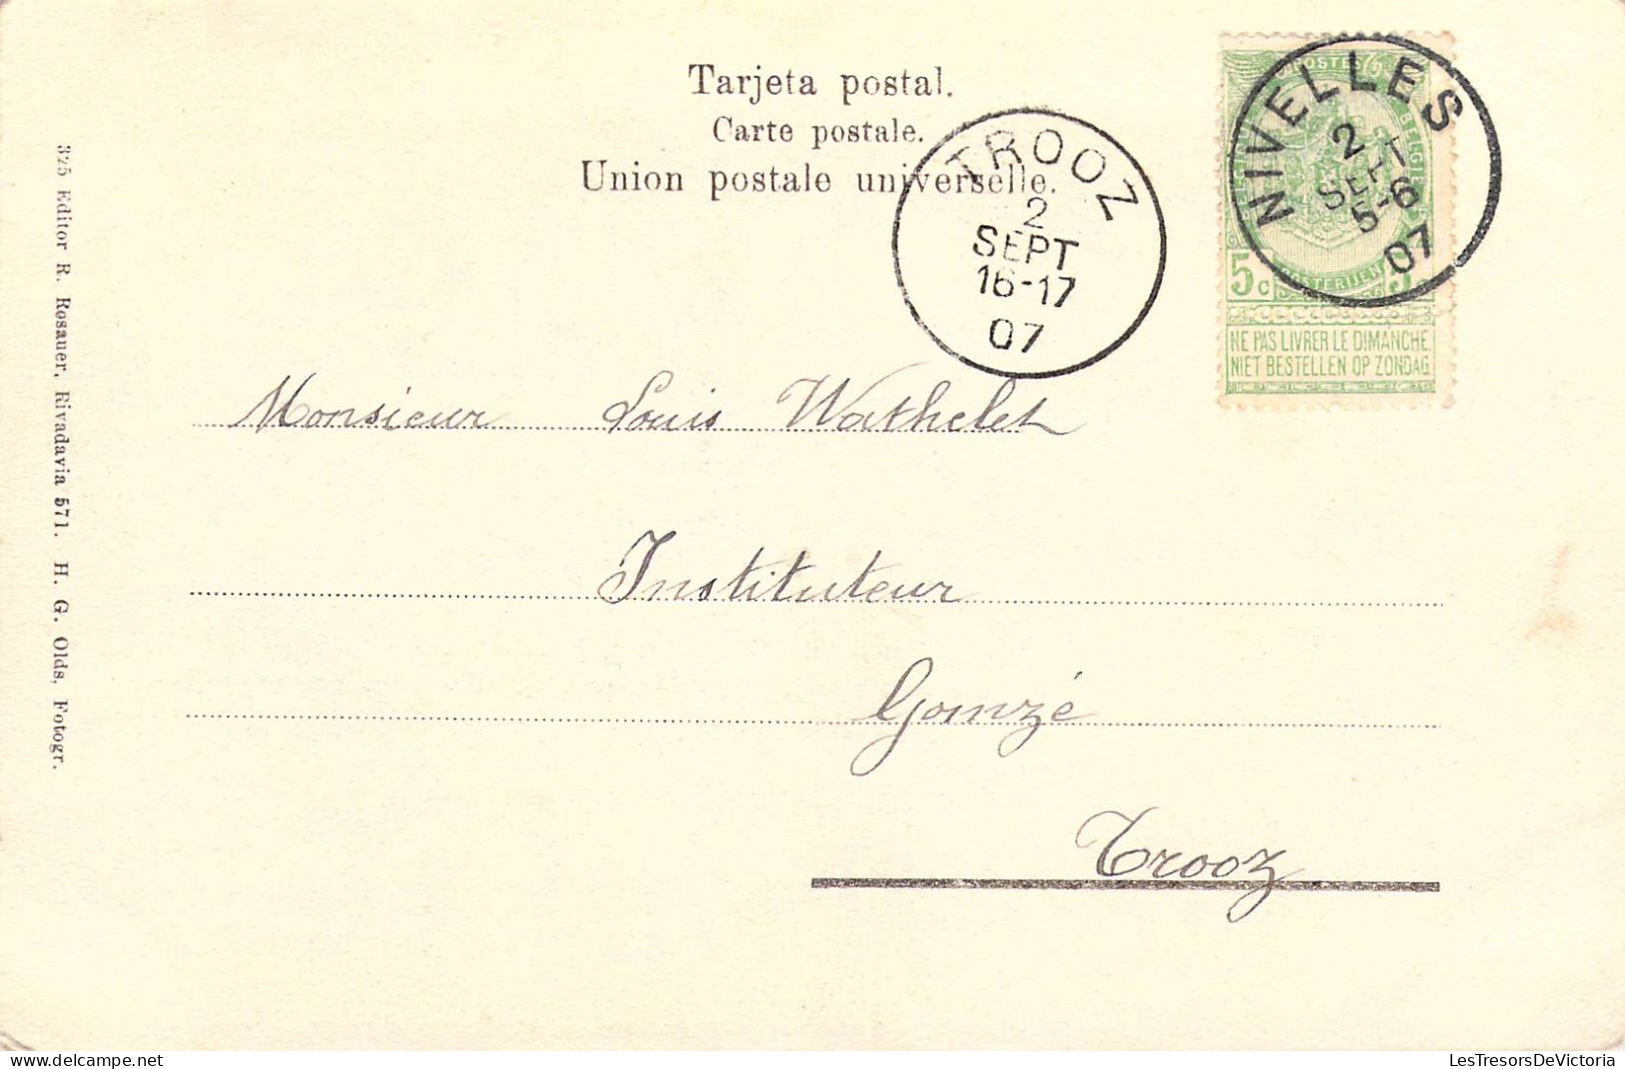 Tarjeta postal.
Carte postale.
Union postale universelle.
TROOZ
2
SEPT
16-17
07
NIVELLES
2
SEPT
5-6
07
POSTES
BELGIË
5 c
POSTERIJEN
5
NE PAS LIVRER LE DIMANCHE
NIET BESTELLEN OP ZONDAG
325 Editor R. Rosauer, Rivadavia 571. H. G. Olds, Fotogr.
Monsieur Louis Wathelet
Instituteur
Gomzé
Trooz
www.delcampe.net
LesTresorsDeVictoria